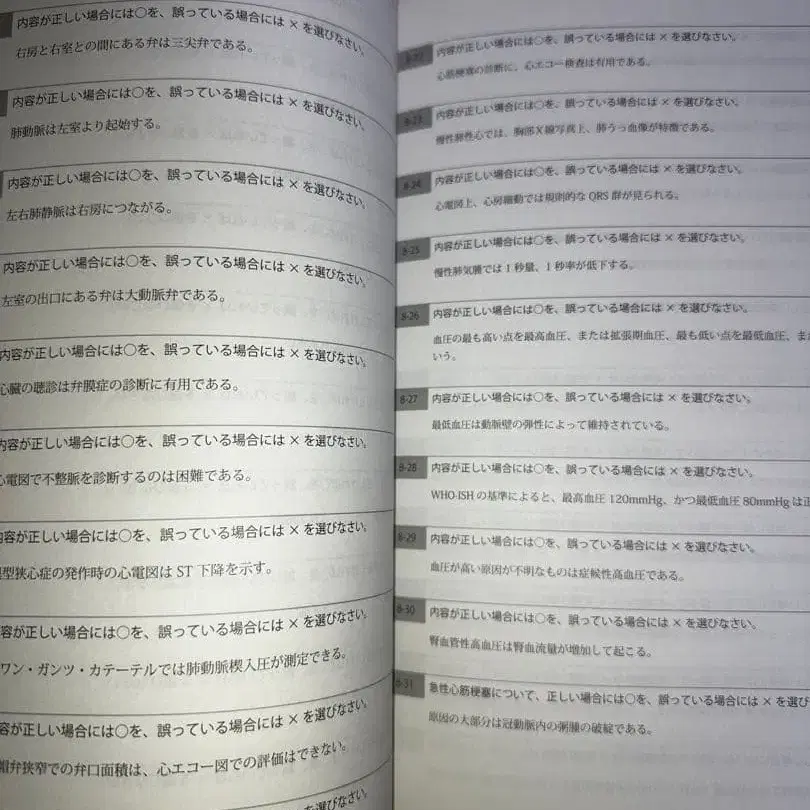 内容が正しい場合には○を、誤っている場合には × を選びなさい。
右房と右室との間にある弁は三尖弁である。
内容が正しい場合には○を、誤っている場合には × を選びなさい。
肺動脈は左室より起始する。
内容が正しい場合には○を、誤っている場合には × を選びなさい。
左右肺静脈は右房につながる。
内容が正しい場合には○を、誤っている場合には × を選びなさい。
左室の出口にある弁は大動脈弁である。
内容が正しい場合には○を、誤っている場合には × を選びなさい。
心臓の聴診は弁膜症の診断に有用である。
内容が正しい場合には○を、誤っている場合には × を選びなさい。
心電図で不整脈を診断するのは困難である。
容が正しい場合には○を、誤っている場合には × を選びなさい。
型狭心症の発作時の心電図は ST 下降を示す。
容が正しい場合には○を、誤っている場合には × を選びなさい。
ワン・ガンツ・カテーテルでは肺動脈楔入圧が測定できる。
容が正しい場合には○を、誤っている場合には × を選びなさい。
帽弁狭窄での弁口面積は、心エコー図での評価はできない。
には○を、誤っている場合には × を選びなさい。
8-22 内容が正しい場合には○を、誤っている場合には × を選びなさい。
心筋梗塞の診断に、心エコー検査は有用である。
8-23 内容が正しい場合には○を、誤っている場合には × を選びなさい。
慢性肺性心では、胸部 X 線写真上、肺うっ血像が特徴である。
8-24 内容が正しい場合には○を、誤っている場合には × を選びなさい。
心電図上、心房細動では規則的な QRS 群が見られる。
8-25 内容が正しい場合には○を、誤っている場合には × を選びなさい。
慢性肺気腫では 1 秒量、1 秒率が低下する。
8-26 内容が正しい場合には○を、誤っている場合には × を選びなさい。
血圧の最も高い点を最高血圧、または拡張期血圧、最も低い点を最低血圧、また
いう。
8-27 内容が正しい場合には○を、誤っている場合には × を選びなさい。
最低血圧は動脈壁の弾性によって維持されている。
8-28 内容が正しい場合には○を、誤っている場合には × を選びなさい。
WHO-ISH の基準によると、最高血圧 120mmHg、かつ最低血圧 80mmHg は正
8-29 内容が正しい場合には○を、誤っている場合には × を選びなさい。
血圧が高い原因が不明なものは症候性高血圧である。
8-30 内容が正しい場合には○を、誤っている場合には × を選びなさい。
腎血管性高血圧は腎血流量が増加して起こる。
8-31 急性心筋梗塞について、正しい場合には○を、誤っている場合には × を選び
原因の大部分は冠動脈内の粥腫の破綻である。